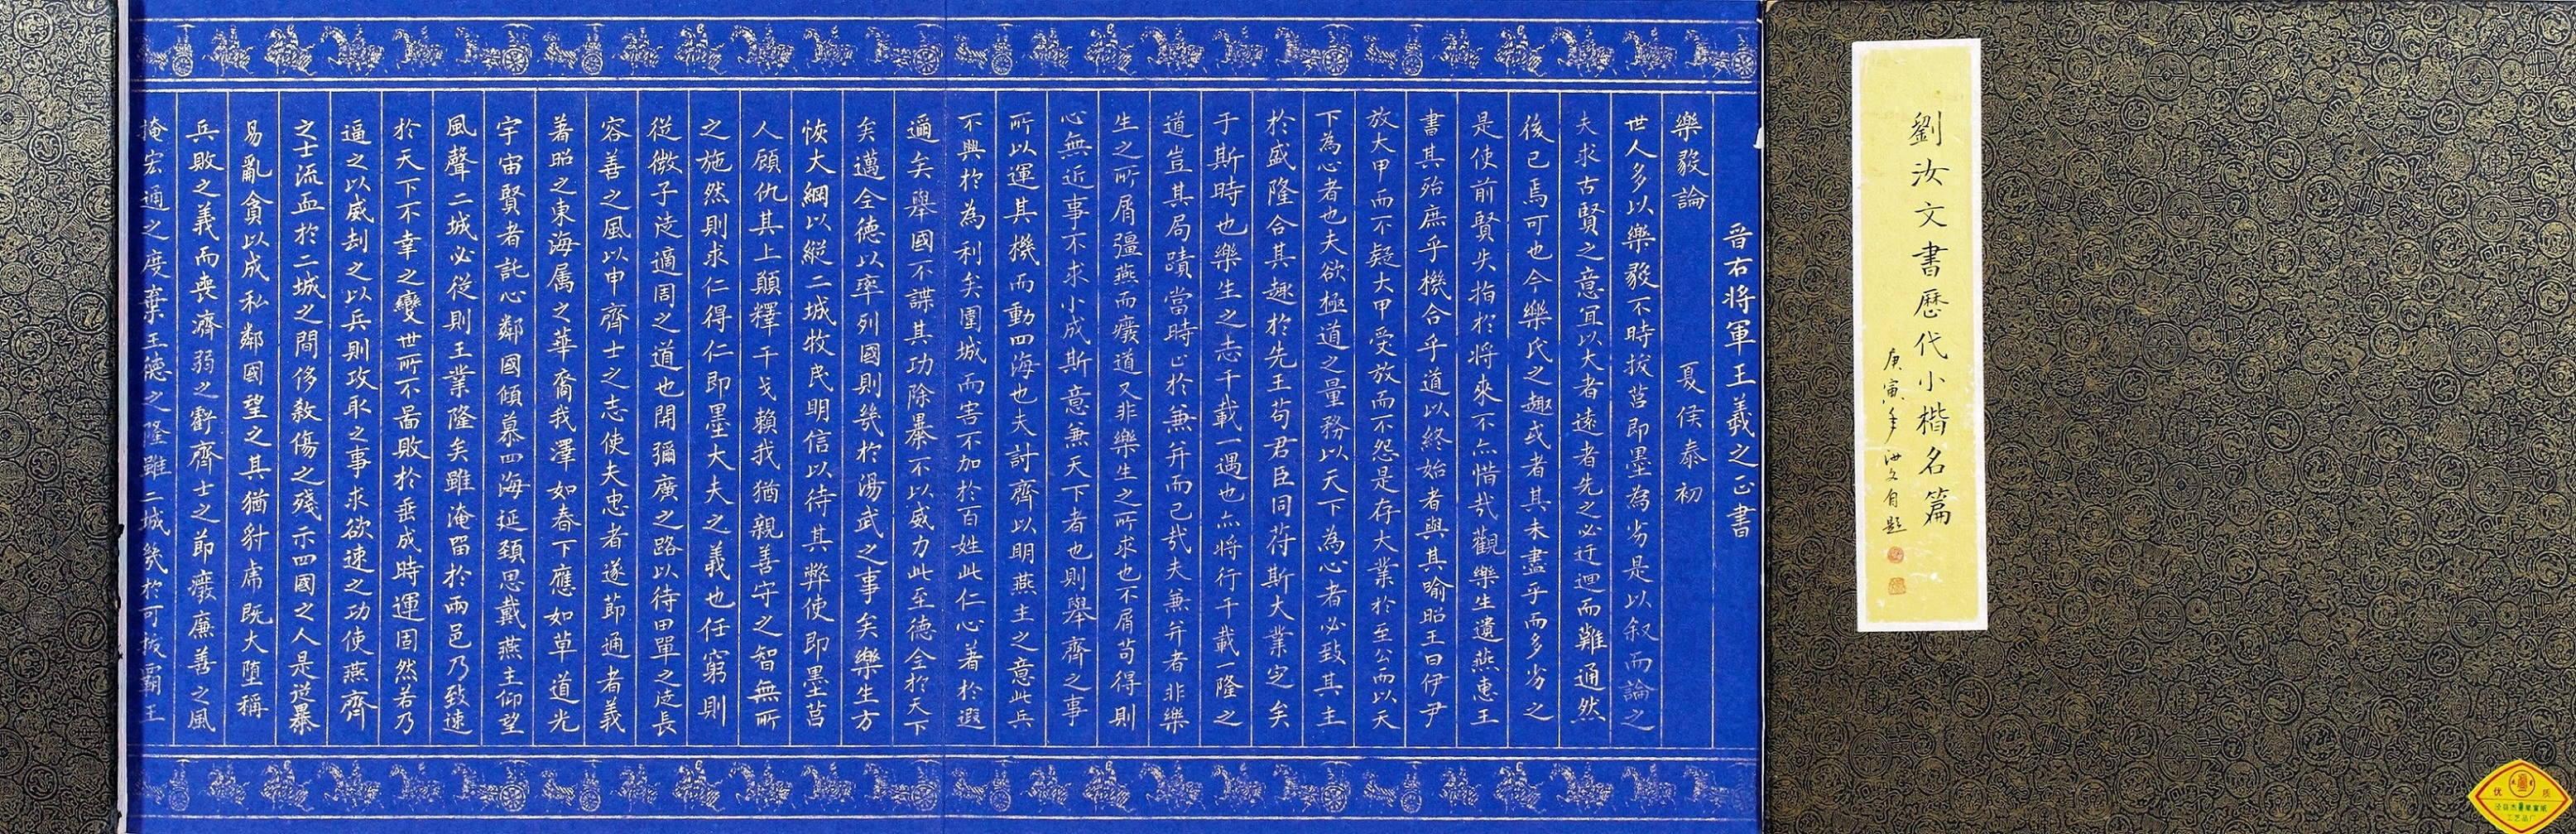 劉汝文書歷代小楷名篇
庚寅年汝文自題
优质
工艺品厂
晉右將軍王羲之正書
樂毅論 夏侯泰初
世人多以樂毅不時拔莒即墨為劣是以叙而論之
夫求古賢之意宜以大者遠者先之必迂迴而難通然
後已焉可也今樂氏之趣或者其未盡乎而多劣之
是使前賢失指於將來不亦惜哉觀樂生遺燕惠王
書其殆庶乎機合乎道以終始者與其喻昭王曰伊尹
放大甲而不疑大甲受放而不怨是存大業於至公而以天
下為心者也夫欲極道之量務以天下為心者必致其主
於盛隆合其趣於先王苟君臣同苻斯大業定矣
于斯時也樂生之志千載一遇也亦將行千載一隆之
道豈其局蹟當時止於兼并而已哉夫兼并者非樂
生之所屑彊燕而癈道又非樂生之所求也不屑苟得則
心無近事不求小成斯意兼天下者也則舉齊之事
所以運其機而動四海也夫討齊以明燕主之意此兵
不興於為利矣圍城而害不加於百姓此仁心著於遐
邇矣舉國不謀其功除暴不以威力此至德全於天下
矣邁全德以率列國則幾於湯武之事矣樂生方
恢大綱以縱二城牧民明信以待其弊使即墨莒
人顧仇其上願釋干戈賴我猶親善守之智無所
之施然則求仁得仁即墨大夫之義也任窮則
從微子適周之道也開彌廣之路以待田單之徒長
容善之風以申齊士之志使夫忠者遂節通者義
著昭之東海屬之華裔我澤如春下應如草道光
宇宙賢者託心鄰國傾慕四海延頸思戴燕主仰望
風聲二城必從則王業隆矣雖淹留於兩邑乃致速
於天下不幸之變世所不啚敗於垂成時運固然若乃
逼之以威劫之以兵則攻取之事求欲速之功使燕齊
之士流血於二城之間侈殺傷之殘示四國之人是逆暴
易亂貪以成私鄰國望之其猶豺虎既大墮稱
兵敗之義而喪濟弱之齊士之節癈廉善之風
掩宏通之度棄王德之隆雖二城幾於可拔霸王